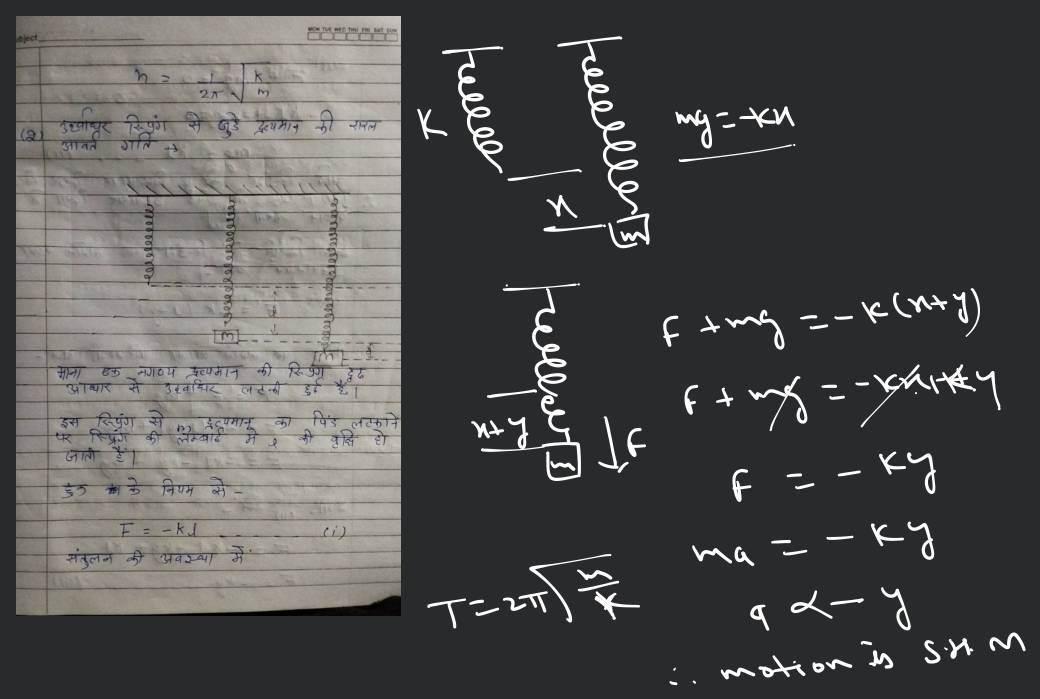 MON TUE WED THU FRI SAT SUN
n = 1/2π √k/m
(2) ऊर्ध्वाधर स्प्रिंग से जुड़े द्रव्यमान की सरल
आवर्त गति →
m
m
माना एक नगण्य द्रव्यमान की स्प्रिंग दृढ़
आधार से ऊर्ध्वाधर लटकी हुई है।
इस स्प्रिंग से m द्रव्यमान का पिंड लटकाने
पर स्प्रिंग की लम्बाई में l की वृद्धि हो
जाती है।
हुक के नियम से -
F = -kl ........ (i)
संतुलन की अवस्था में
K
x
m
mg = -kx
x+y
m
F
F + mg = -K(x+y)
F + mg = -Kx + Ky
F = - Ky
ma = - Ky
a ∝ - y
∴ motion is S.H.M
T = 2π √m/k